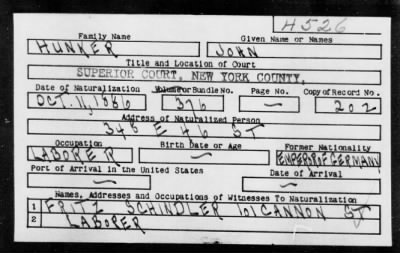 H526
Family Name Given Name or Names
HUNKER JOHN
Title and Location of Court
SUPERIOR COURT, NEW YORK COUNTY.
Date of Naturalization Volume or Bundle No. Page No. Copy of Record No.
OCT. 11, 1886 376 — 202
Address of Naturalized Person
348 E 46 ST
Occupation Birth Date or Age Former Nationality
LABORER — EMPEROR OF GERMANY
Port of Arrival in the United States Date of Arrival
— —
Names, Addresses and Occupations of Witnesses To Naturalization
1 FRITZ SCHINDLER 101 CANNON ST
2 LABORER